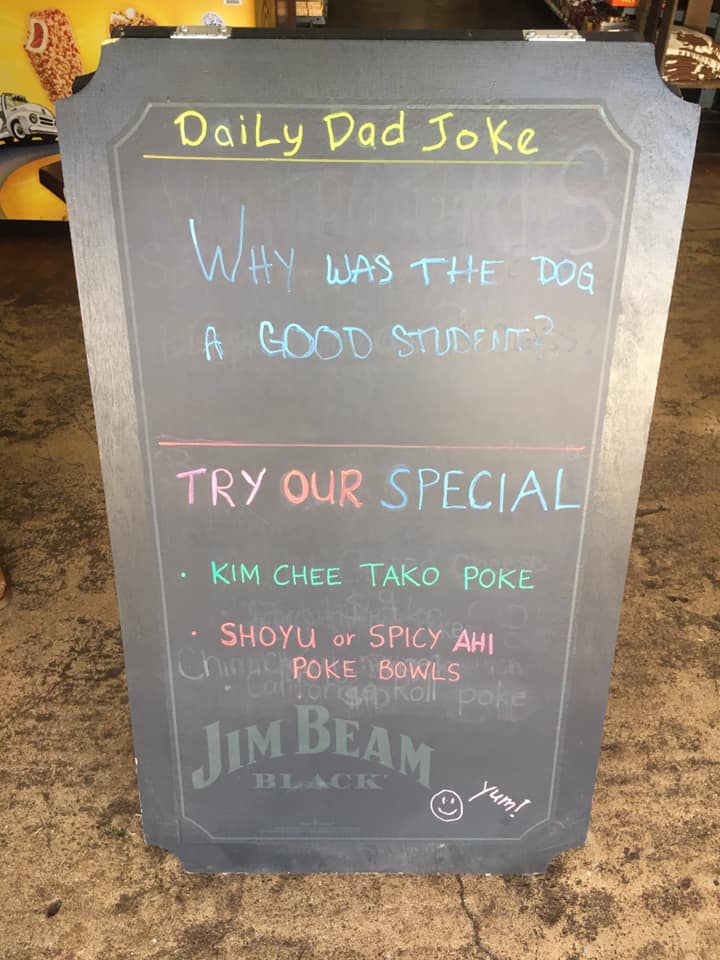 Daily Dad Joke
WHY WAS THE DOG
A GOOD STUDENT?
TRY OUR SPECIAL
• KIM CHEE TAKO POKE
• SHOYU or SPICY AHI
POKE BOWLS
California Roll poke
JIM BEAM
BLACK
Yum!